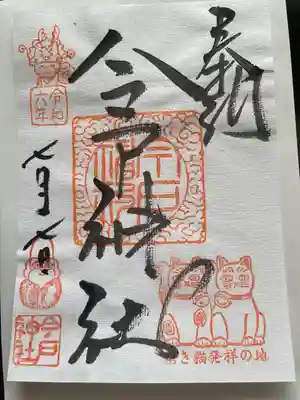 奉納
今戸神社
令和六年
七月七日
今戸神社
今戸神社
招き猫発祥の地